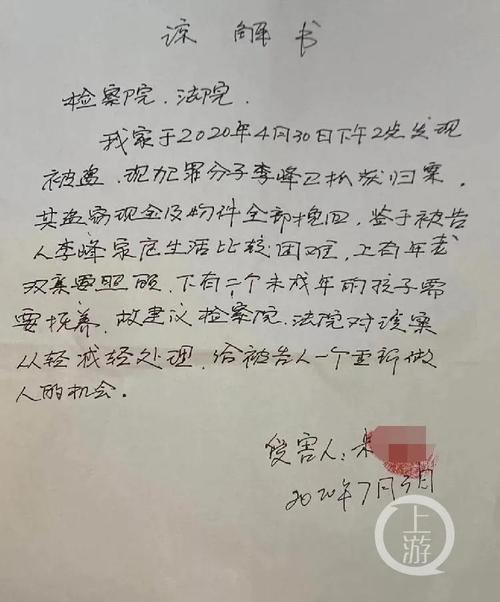 谅解书
检察院、法院、
我家于2020年4月30日下午2点发现
被盗、现犯罪分子李峰已抓获归案,
其盗窃现金及物件全部挽回,鉴于被告
人李峰家庭生活比较困难,上有年老
双亲要照顾,下有二个未成年的孩子需
要抚养,故建议检察院、法院对该案
从轻减轻处理,给被告人一个重新做
人的机会。
受害人:
2020年7月3日
上游